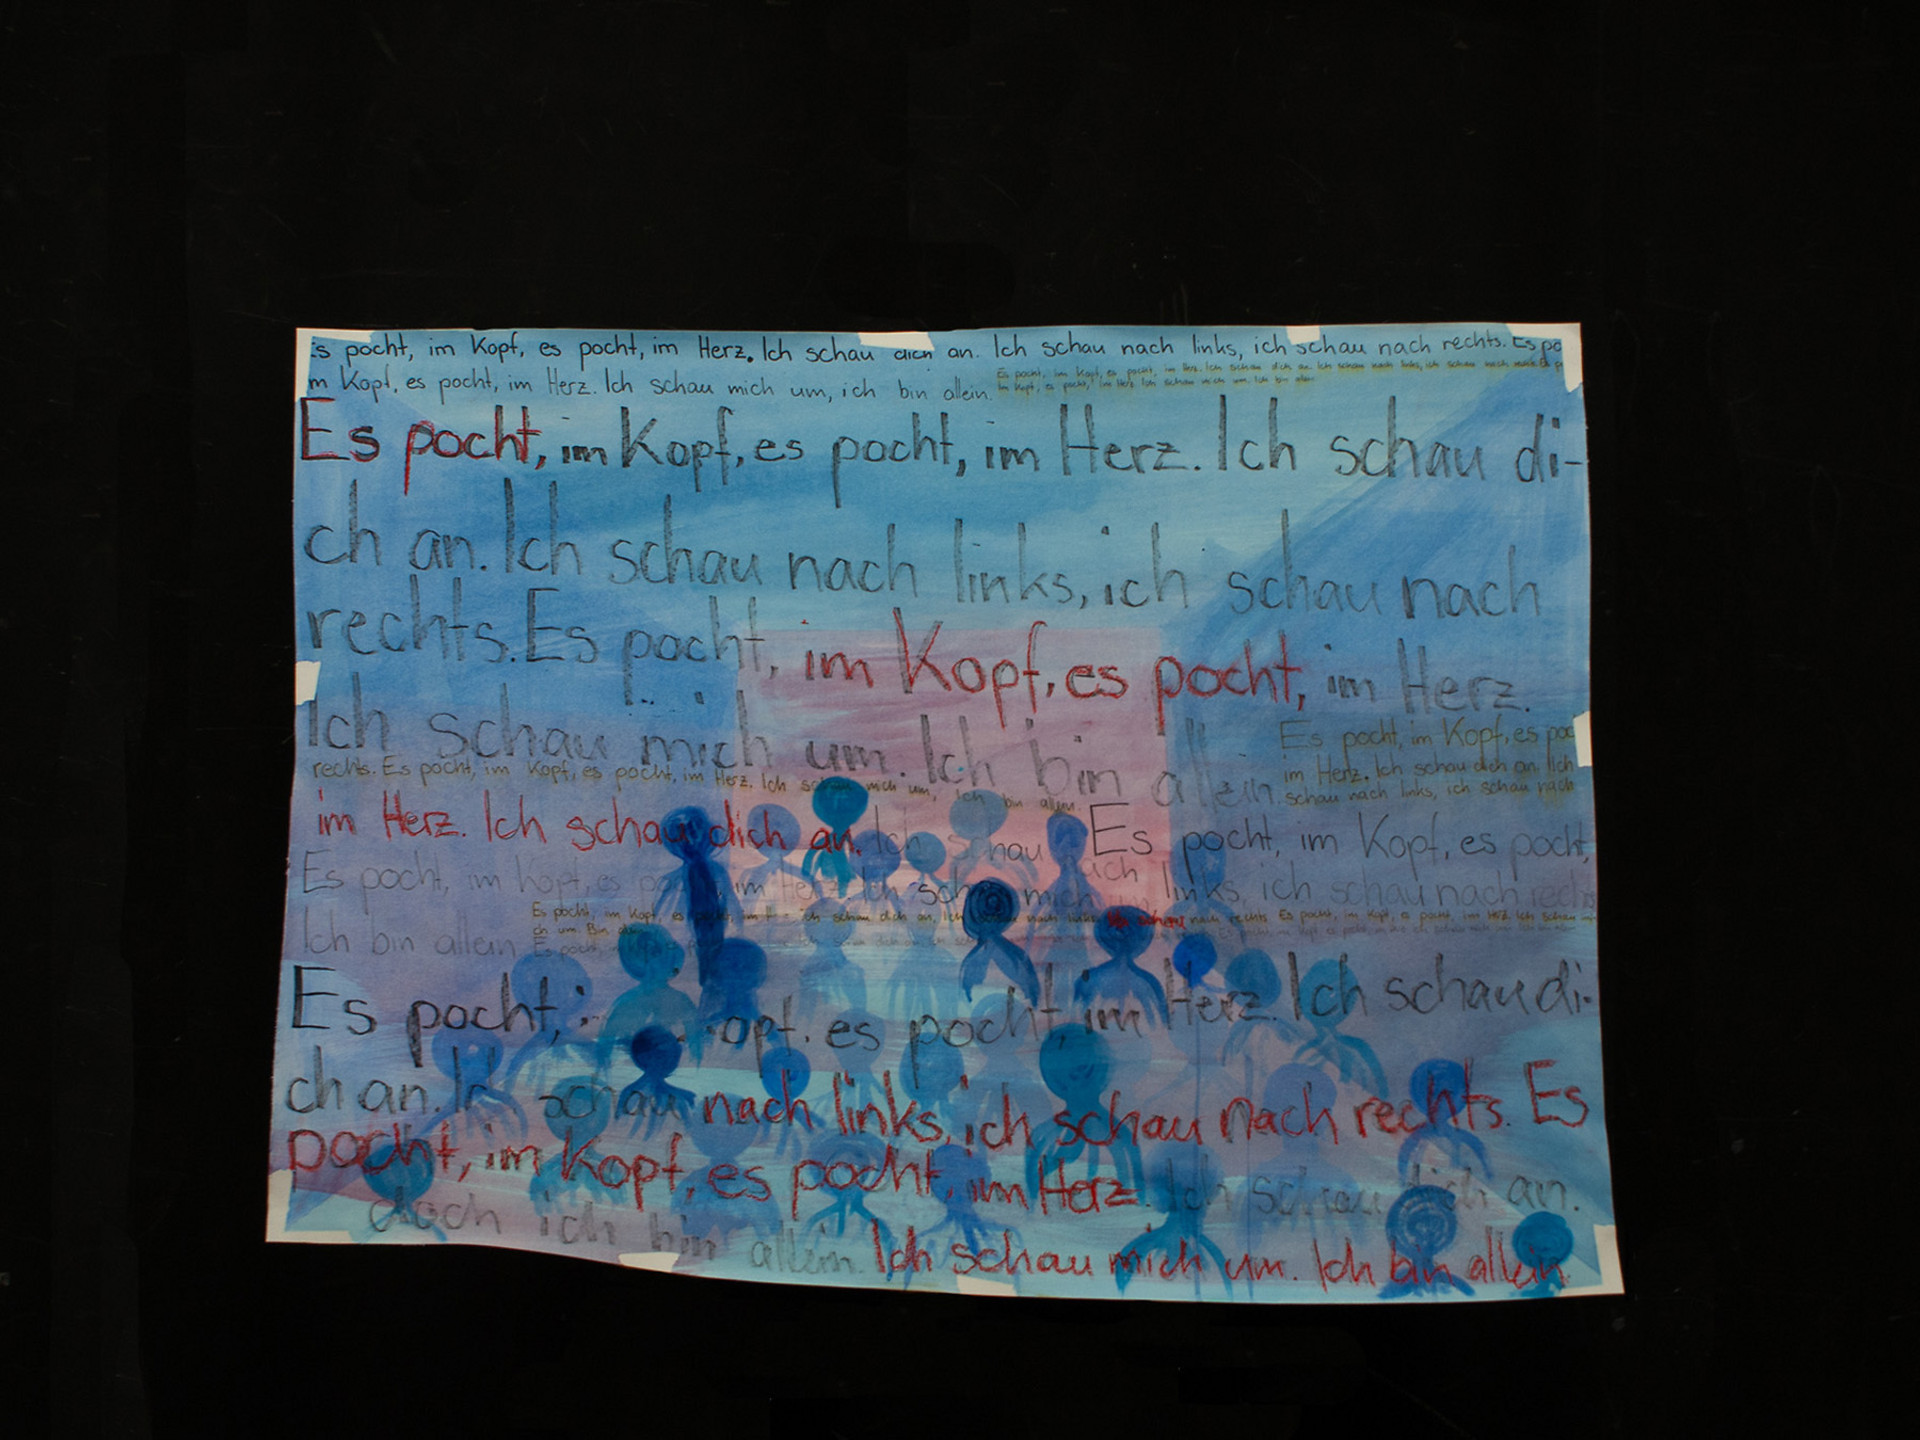 Es pocht, im Kopf, es pocht, im Herz. Ich schau dich an. Ich schau nach links, ich schau nach rechts. Es po
m Kopf, es pocht, im Herz. Ich schau mich um, ich bin allein.
Es pocht, im Kopf, es pocht, im Herz. Ich schau dich an. Ich schau nach links, ich schau nach
im Kopf, es pocht, im Herz. Ich schau mich um. Ich bin allein
Es pocht, im Kopf, es pocht, im Herz. Ich schau di-
ch an. Ich schau nach links, ich schau nach
rechts. Es pocht, im Kopf, es pocht, im Herz.
Ich schau mich um. Ich bin allein.
Es pocht, im Kopf, es poc
im Herz. Ich schau dich an. Ich
schau nach links, ich schau nach
rechts. Es pocht, im Kopf, es pocht, im Herz. Ich schau mich um, ich bin allein.
im Herz. Ich schau dich an. Ich schau
Es pocht, im Kopf, es pocht,
Es pocht, im Kopf, es pocht, im Herz. Ich schau mich um
nach links, ich schau nach rechts
Es pocht, im Kopf, es pocht, im Herz. Ich schau dich an, Ich schau nach links Ich schau nach rechts Es pocht, im Kopf, es pocht, im Herz. Ich schau mi
ch um. Bin allein
Ich bin allein
Es pocht,
Es pocht, opf, es pocht, im Herz. Ich schau di-
ch an. Ich schau nach links, ich schau nach rechts. Es
pocht, im Kopf, es pocht, im Herz. Ich schau dich an.
doch ich bin allein. Ich schau mich um. Ich bin allein